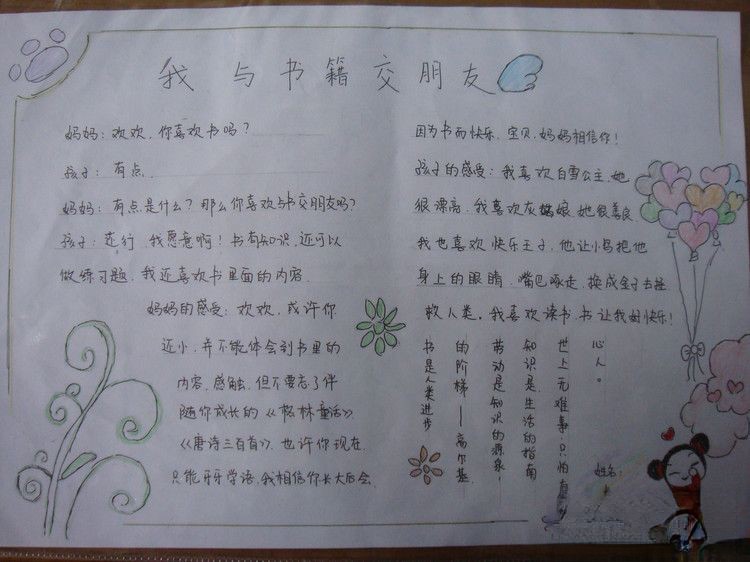 我与书籍交朋友
妈妈：欢欢，你喜欢书吗？
孩子：有点。
妈妈：有点是什么？那么你喜欢与书交朋友吗？
孩子：还行，我愿意啊！书有知识，还可以
做练习题，我还喜欢书里面的内容。
妈妈的感受：欢欢，或许你
还小，并不能体会到书里的
内容，感触，但不要忘了伴
随你成长的《格林童话》、
《唐诗三百首》。也许你现在
只能牙牙学语，我相信你长大后会
因为书而快乐，宝贝，妈妈相信你！
孩子的感受：我喜欢白雪公主，她
很漂亮，我喜欢灰姑娘，她很善良
我也喜欢快乐王子，他让小鸟把他
身上的眼睛，嘴巴啄走，换成金子去拯
救人类。我喜欢读书，书让我好快乐！
书是人类进步
的阶梯——高尔基
劳动是知识的源泉，
知识是生活的指南
世上无难事，只怕有
心人。
姓名：